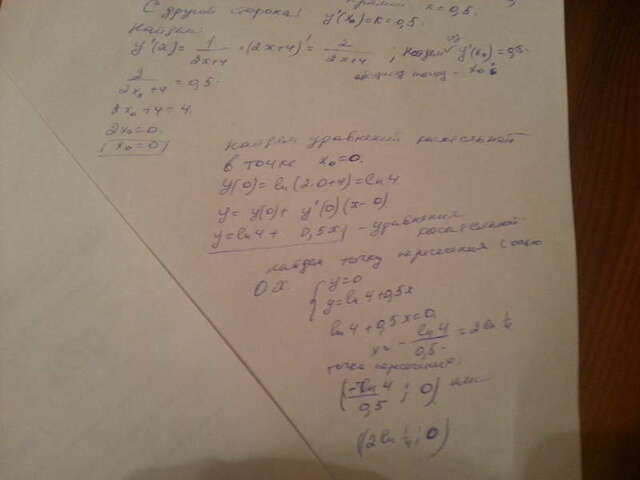 С другой стороны: y'(x₀)=k=0,5.
k=0,5.
Найдем:
y'(x) = 1/(2x+4) · (2x+4)' = 2/(2x+4) ; Найдем y'(x₀)=0,5
2/(2x₀+4) = 0,5.
2x₀+4=4.
2x₀=0.
x₀=0
Найдем уравнение касательной
в точке x₀=0.
y(0)=ln(2·0+4)=ln4
y= y(0)+ y'(0)(x-0)
y=ln4+ 0,5x - уравнение касательной
найдем точку пересечения с осью
OX { y=0
y=ln4+0,5x
ln4+0,5x=0
x= - ln4/0,5 = 2ln 1/4
точка пересечения:
(-ln4/0,5 ; 0) или
(2ln 1/4 ; 0)